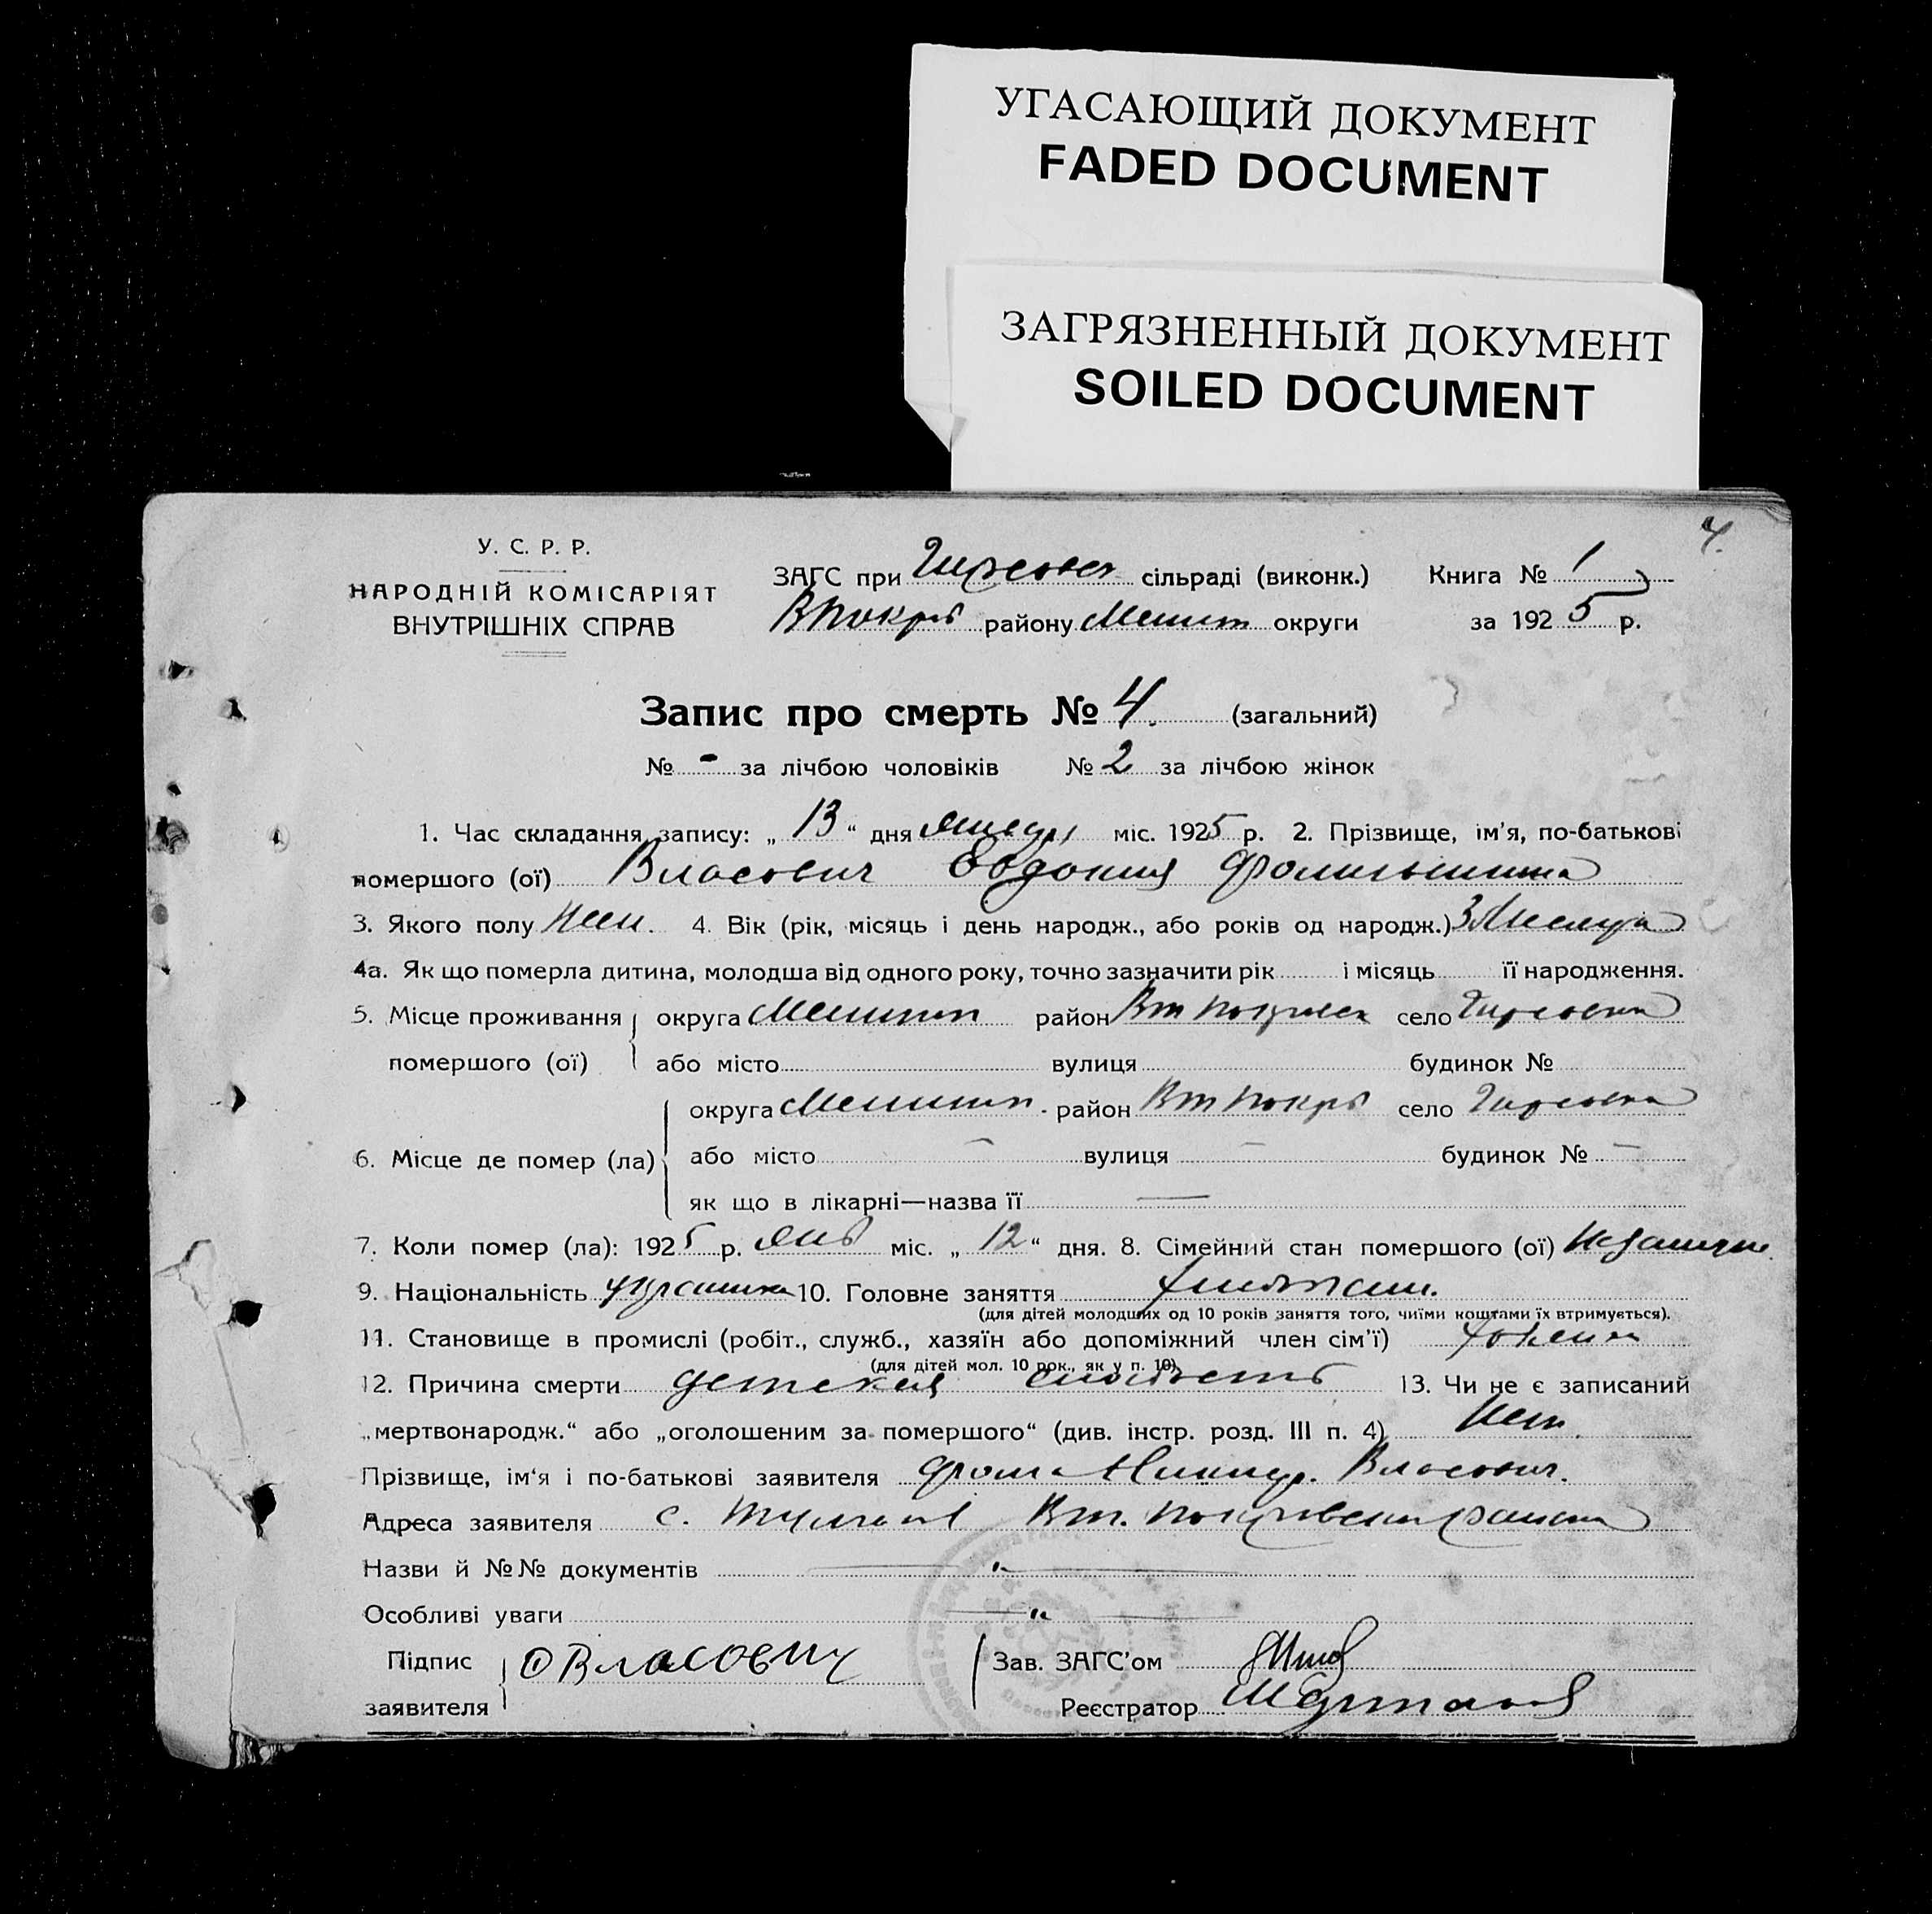 УГАСАЮЩИЙ ДОКУМЕНТ
FADED DOCUMENT
ЗАГРЯЗНЕННЫЙ ДОКУМЕНТ
SOILED DOCUMENT
4.
У. С. Р. Р.
НАРОДНІЙ КОМІСАРІЯТ
ВНУТРІШНІХ СПРАВ
ЗАГС при сільраді (виконк.) Книга № 1
району Мелит округи за 1925 р.
Запис про смерть № 4. (загальний)
№ - за лічбою чоловіків № 2 за лічбою жінок
1. Час складання запису: „ 13 “ дня міс. 1925 р. 2. Прізвище, ім'я, по-батькові
помершого (ої) Власович Евдокия
3. Якого полу жен. 4. Вік (рік, місяць і день народж., або років од народж.) 3 месяца
4а. Як що померла дитина, молодша від одного року, точно зазначити рік і місяць її народження.
5. Місце проживання округа Мелитоп район село
помершого (ої) або місто вулиця будинок №
округа Мелитоп. район Вт Покр село
6. Місце де помер (ла) або місто — вулиця — будинок № —
як що в лікарні—назва її —
7. Коли помер (ла): 1925 р. Янв міс. „ 12 “ дня. 8. Сімейний стан помершого (ої)
9. Національність украинка 10. Головне заняття хлебопаш.
(для дітей молодших од 10 років заняття того, чиїми коштами їх втримується).
11. Становище в промислі (робіт., служб., хазяїн або допоміжний член сім'ї)
(для дітей мол. 10 рок., як у п. 10)
12. Причина смерти детская слабость 13. Чи не є записаний
„мертвонародж.“ або „оголошеним за помершого“ (див. інстр. розд. III п. 4) Нет.
Прізвище, ім'я і по-батькові заявителя Фома Власович.
Адреса заявителя с. Вт. Покровского района
Назви й №№ документів — „ —
Особливі уваги — „ —
Підпис Власович Зав. ЗАГС'ом
заявителя Реєстратор